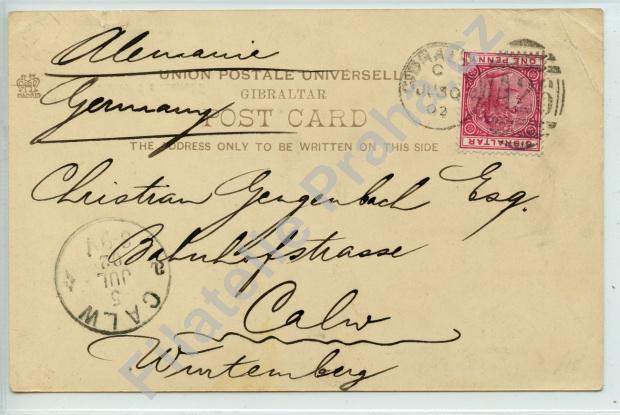 Alemanie
Germany
UNION POSTALE UNIVERSELLE
GIBRALTAR
POST CARD
THE ADDRESS ONLY TO BE WRITTEN ON THIS SIDE
MADRID
GIBRALTAR
C
JU 30
02
ONE PENNY
GIBRALTAR
Christian Gengenbach Esq.
Bahnhofstrasse
Calw
Wurtemberg
CALW
5
JUL
02
Filatelie Praha.cz